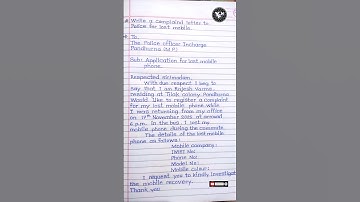 Write a complaint letter to
Police for lost mobile.
To,
The Police officer Incharge
Pandhurna (M.P)
Sub: Application for lost mobile
phone.
Respected sir/madam,
With due respect I beg to
say that, I am Rajesh Varma
residing at Tilak colony Pandhurna
Would like to register a complaint
for my lost mobile phone while
I was returning from my office
on 17th November 2025 at around
6 p.m. in the bus. I lost my
mobile phone during the commute.
The details of the lost mobile
phone as follows:
Mobile company:
IMEI No:
Phone No:
Model No:
Mobile colour:
I request you to kindly investigat
the mobile recovery.
Thank you